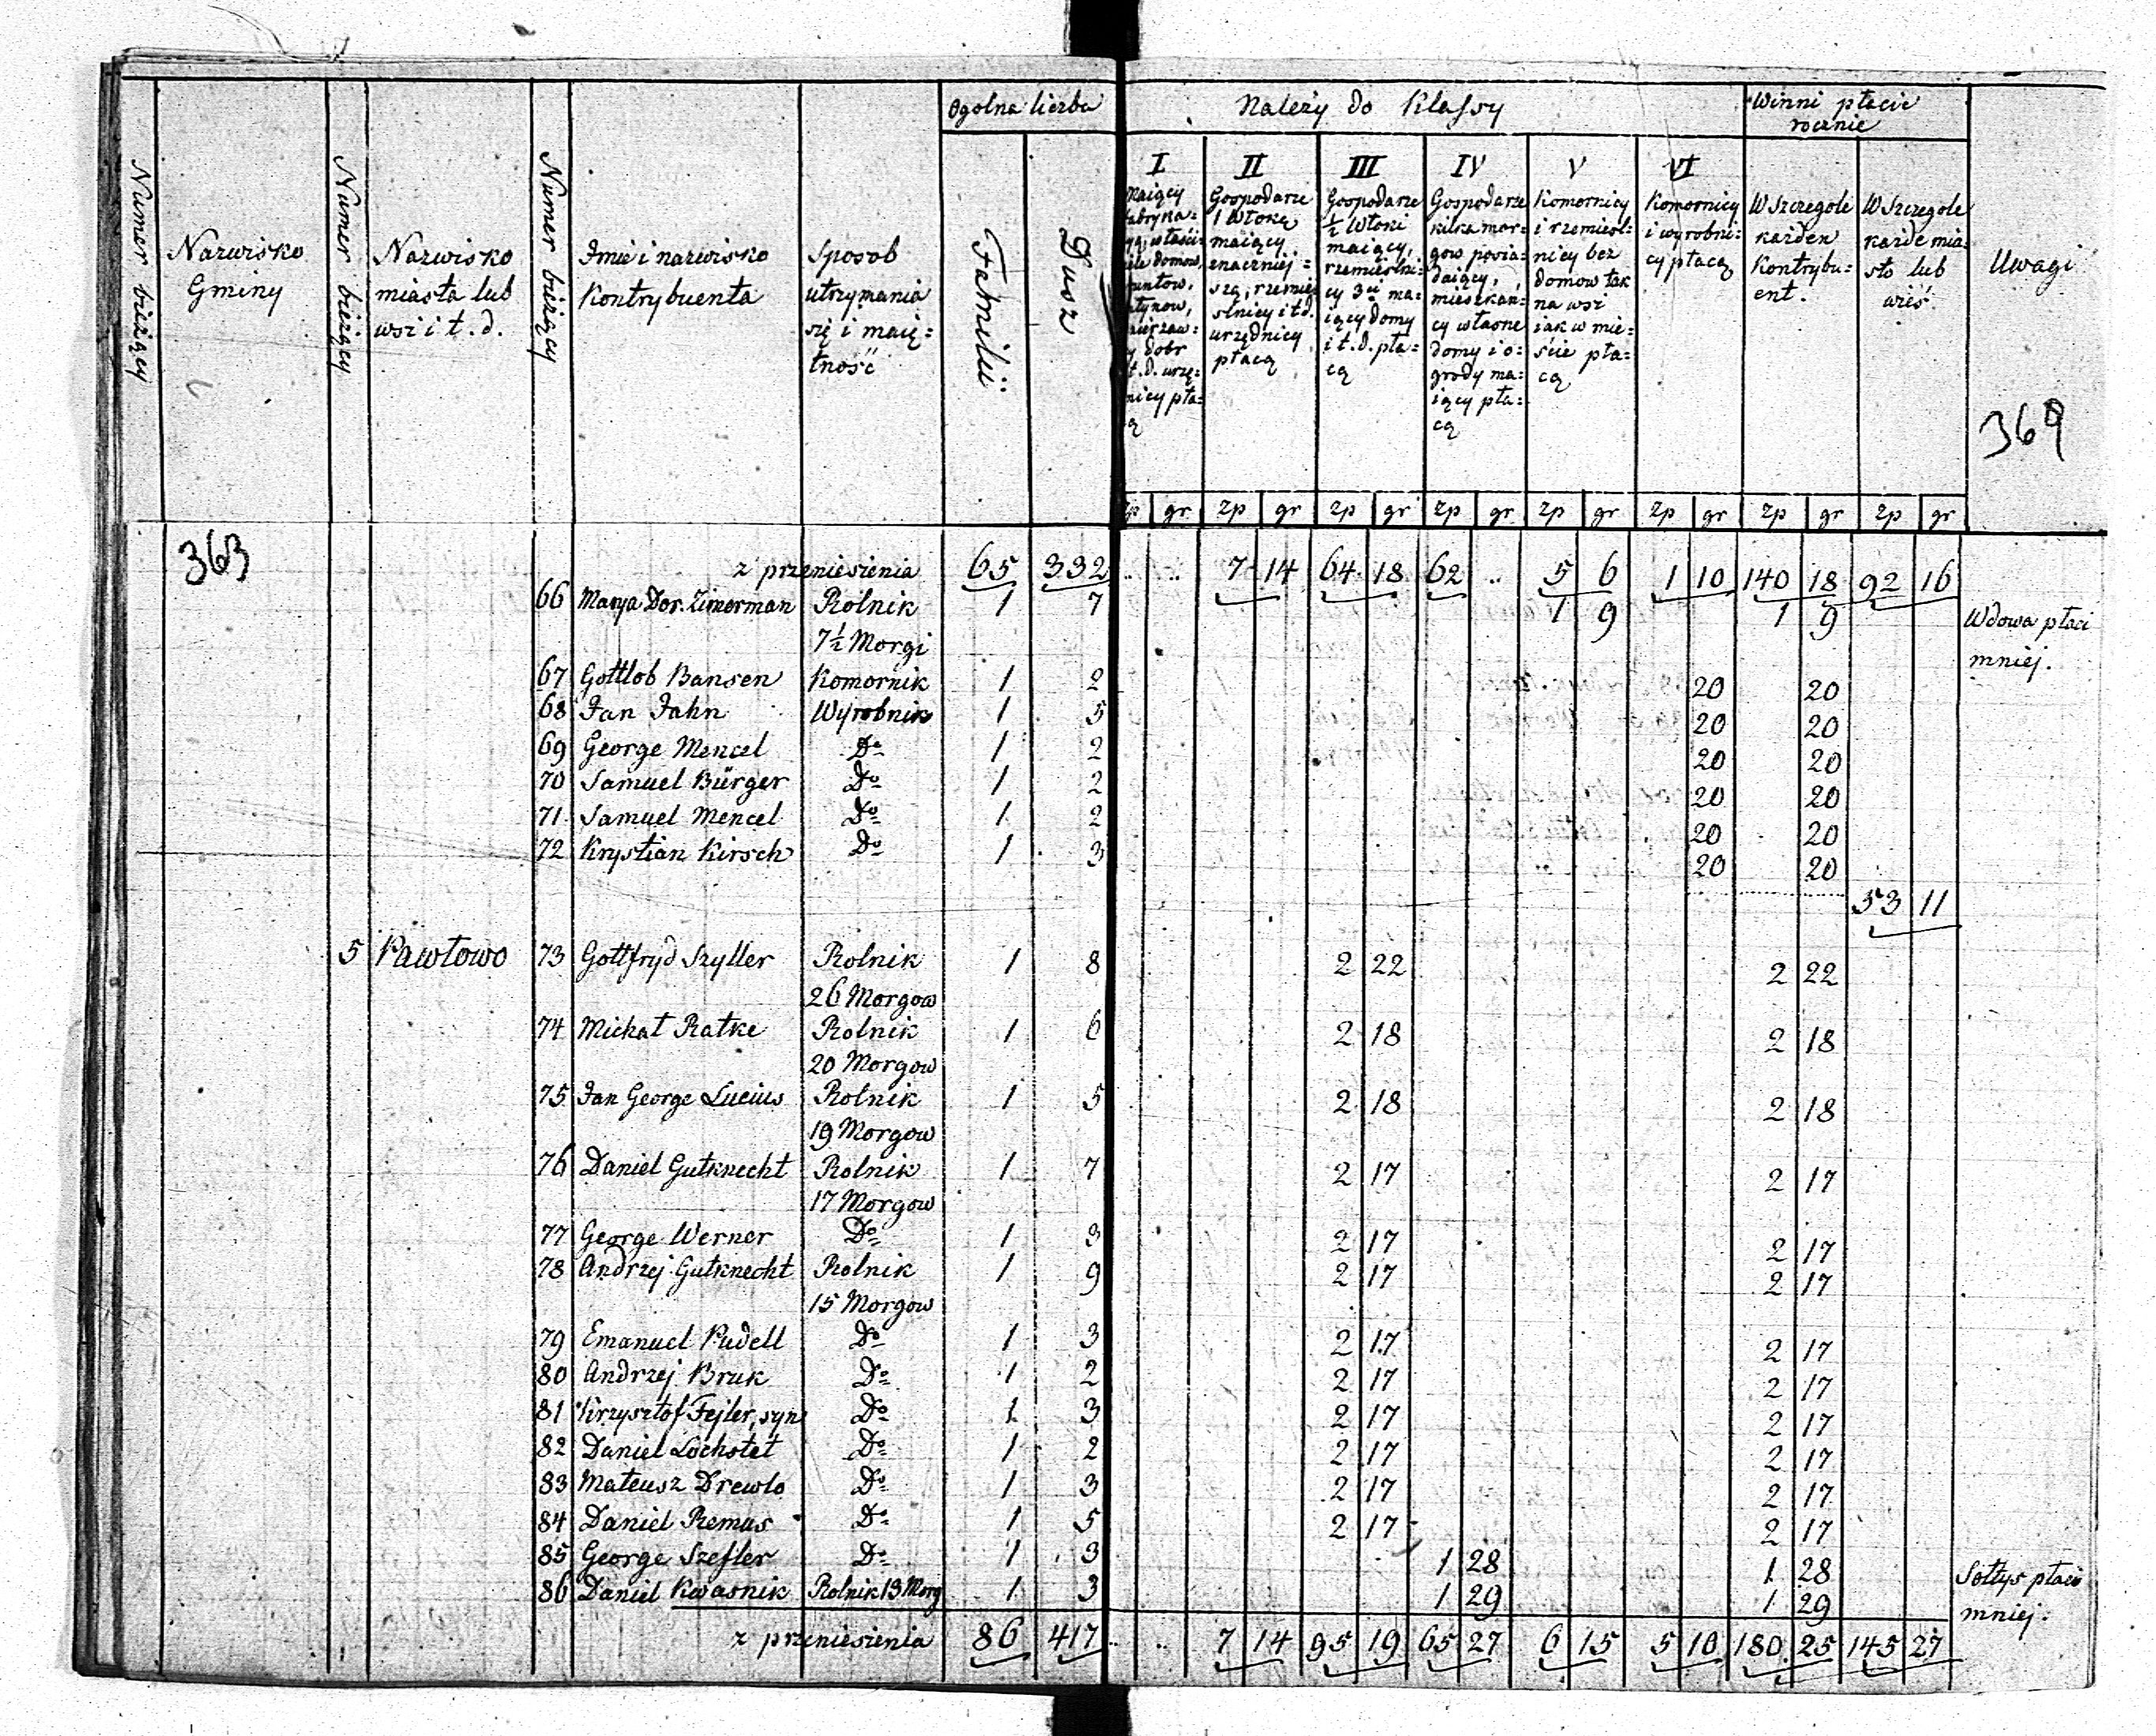 Ogolna liczba
Należy do Klassy
Winni płacić
rocznie
Numer bieżący
Nazwisko
Gminy
Numer bieżący
Nazwisko
miasta lub
wsi i t. d.
Numer bieżący
Imie i nazwisko
Kontrybuenta
Sposob
utrzymania
się i maię=
tność
Familii
Dusz
I
Maiący
nicy pła=
II
Gospodarze
1 Włokę
maiący
znaczniej=
szą, rzemie
slnicy i t d.
urzędnicy
płacą
III
Gospodarze
½ Włoki
maiący,
rzemieslni=
cy 3ci ma=
iący domy
i t. d. pła=
cą
IV
Gospodarze
kilka mor=
gow posia=
daiący,
mieszkan=
cy własne
domy i o=
grody ma=
iący pła=
cą
V
Komornicy
i rzemiesl=
nicy bez
domow tak
na wsi
iak w mie=
ście pła=
cą
VI
Komornicy
i wyrobni=
cy płacą
W szczegole
każden
Kontrybu=
ent.
W szczegole
każde mia=
sto lub
wieś
Uwagi
369
zp gr zp gr zp gr zp gr zp gr zp gr zp gr zp gr
363
z przeniesienia 65 332 .. .. 7 14 64 18 62 .. 5 6 1 10 140 18 92 16
66 Marya Dor. Zimerman Rolnik 1 7 1 9 1 9 Wdowa płaci
7½ Morgi mniej.
67 Gottlob Bansen Komornik 1 2 20 20
68 Jan Jahn Wyrobnik 1 5 20 20
69 George Mencel Do 1 2 20 20
70 Samuel Bürger Do 1 2 20 20
71 Samuel Mencel Do 1 2 20 20
72 Krystian Kirsch Do 1 3 20 20
53 11
5 Pawłowo 73 Gottfryd Szyller Rolnik 1 8 2 22 2 22
26 Morgow
74 Michał Ratke Rolnik 1 6 2 18 2 18
20 Morgow
75 Jan George Lucius Rolnik 1 5 2 18 2 18
19 Morgow
76 Daniel Gutknecht Rolnik 1 7 2 17 2 17
17 Morgow
77 George Werner Do 1 3 2 17 2 17
78 Andrzej Gutknecht Rolnik 1 9 2 17 2 17
15 Morgow
79 Emanuel Pudell Do 1 3 2 17 2 17
80 Andrzej Bruk Do 1 2 2 17 2 17
81 Krzysztof Fejler, syn Do 1 3 2 17 2 17
82 Daniel Lochstet Do 1 2 2 17 2 17
83 Mateusz Drewlo Do 1 3 2 17 2 17
84 Daniel Remus Do 1 5 2 17 2 17
85 George Szefler Do 1 3 1 28 1 28 Sołtys płaci
86 Daniel Kwasnik Rolnik 13 Morg 1 3 1 29 1 29 mniej.
z przeniesienia 86 417 .. .. 7 14 95 19 65 27 6 15 5 10 180 25 145 27